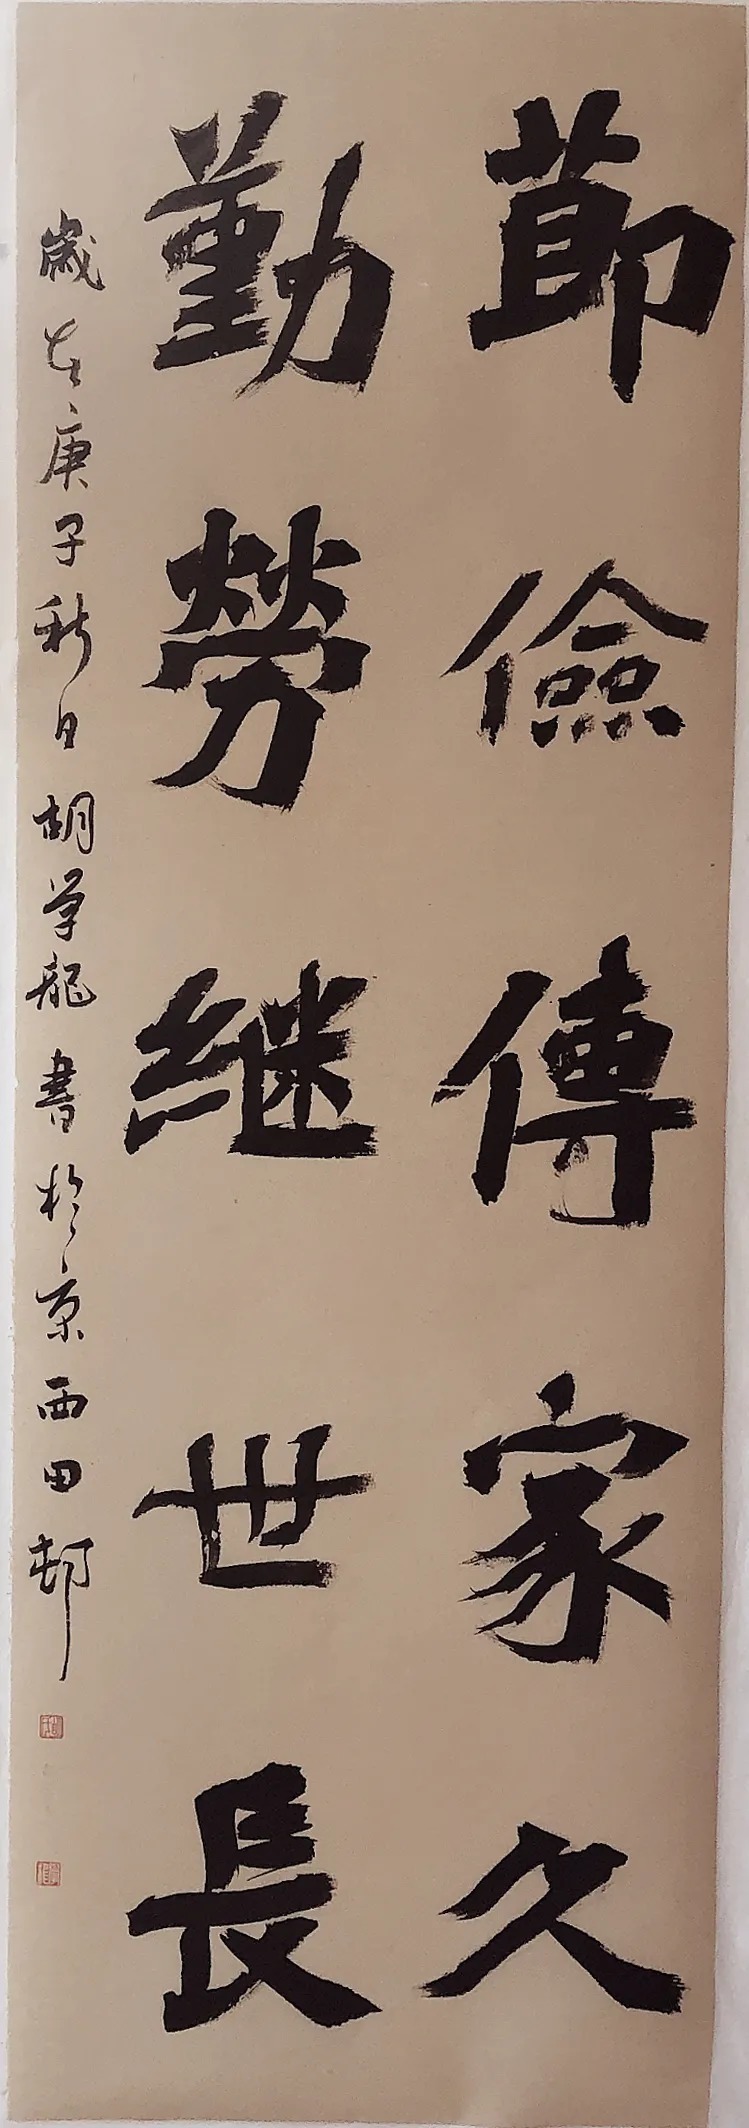 節儉傳家久
勤勞継世長
歲在庚子秋日胡学龍書於京西田邨